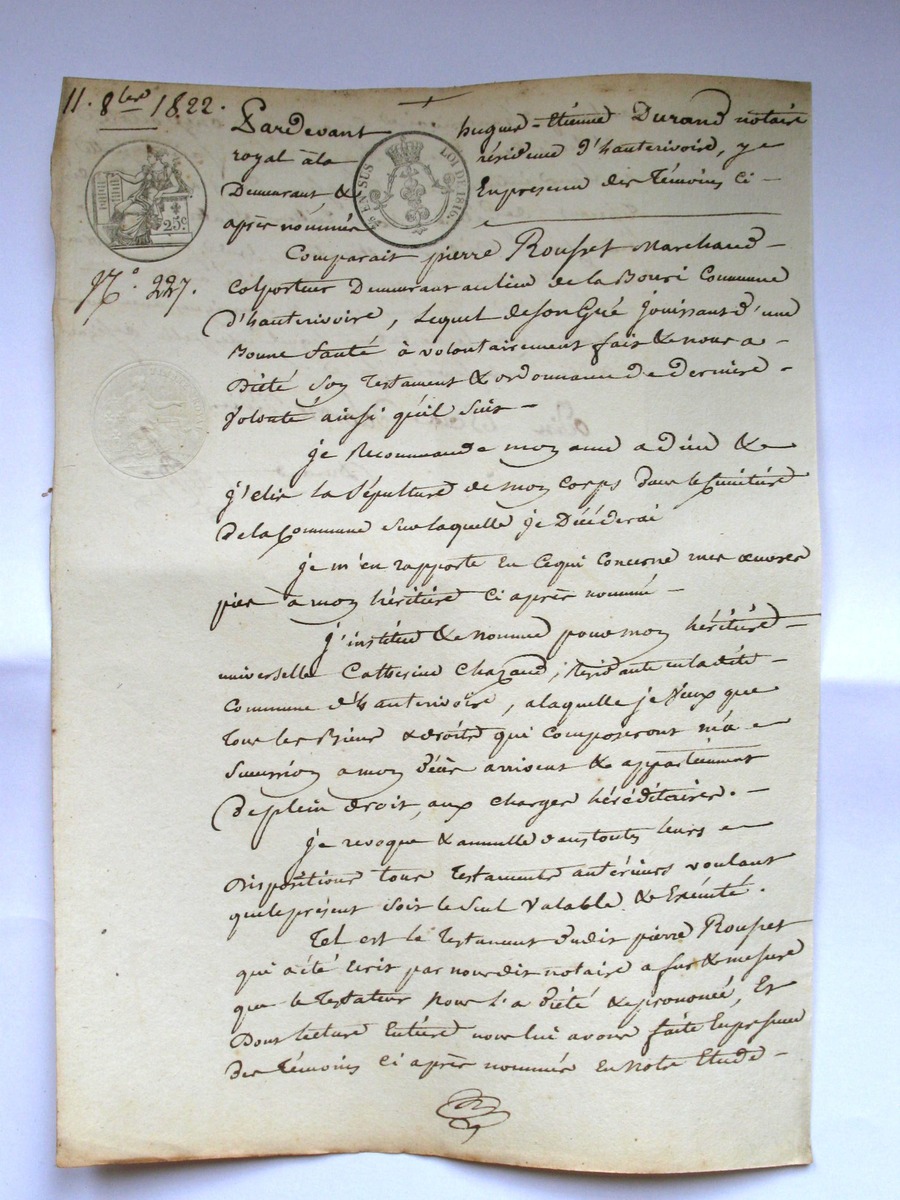 11. 8bre 1822.
Pardevant hugues-Etienne Durand notaire
royal àla résidence d'hauterivoire, y
Demeurant, & Enprésence des Témoins Ci-
après nommés
25c
EN SUS
LOI DU 1816.
N.° 227.
Comparait pierre Rousset Marchand-
Colporteur Demeurant aulieu de la Commune
d'hauterivoire, Lequel deson Gré Jouissant d'une
Bonne Santé à volontairement fait & nous a-
Dicté son Testament & ordonnance De dernière-
Volonté ainsi qu'il Suit-
je Recommande mon ame a Dieu &
j'elis la Sépulture de mon Corps dans le Cimitière
De la Commune Sur laquelle je Décéderai
je m'en rapporte En Cequi Concerne mes œuvres
pies a mon héritière Ci après nommée-
J'institue & nomme pour mon héritière-
universelle Catherine Chazaud, Résidante enladite-
Commune d'hauterivoire, alaquelle je Veux que
Tous les Biens & droits qui Composeront ma
Succession a mon Décès arrivent & appartiennent
De plein droit, aux Charges héréditaires.-
je revoque & annulle danstoutes leurs
Dispositions tous Testaments antérieurs voulant
que le présent Soit le Seul Valable & Exécuté.
Tel est le Testament dudit pierre Rousset
qui a été Ecrit par nousdit notaire a fur & mesure
que le Testateur Nous l'a Dicté & prononcé, Et
Dont lecture Entière nous lui avons faite Enprésence
Des Témoins Ci après nommés En Notre Etude-